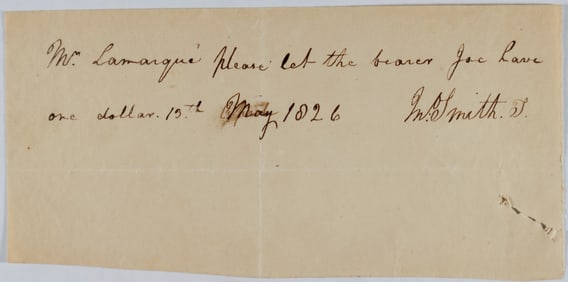 Mr. Lamarqué please let the bearer Joe have
one dollar. 15th May 1826 Mc.Smith. T.